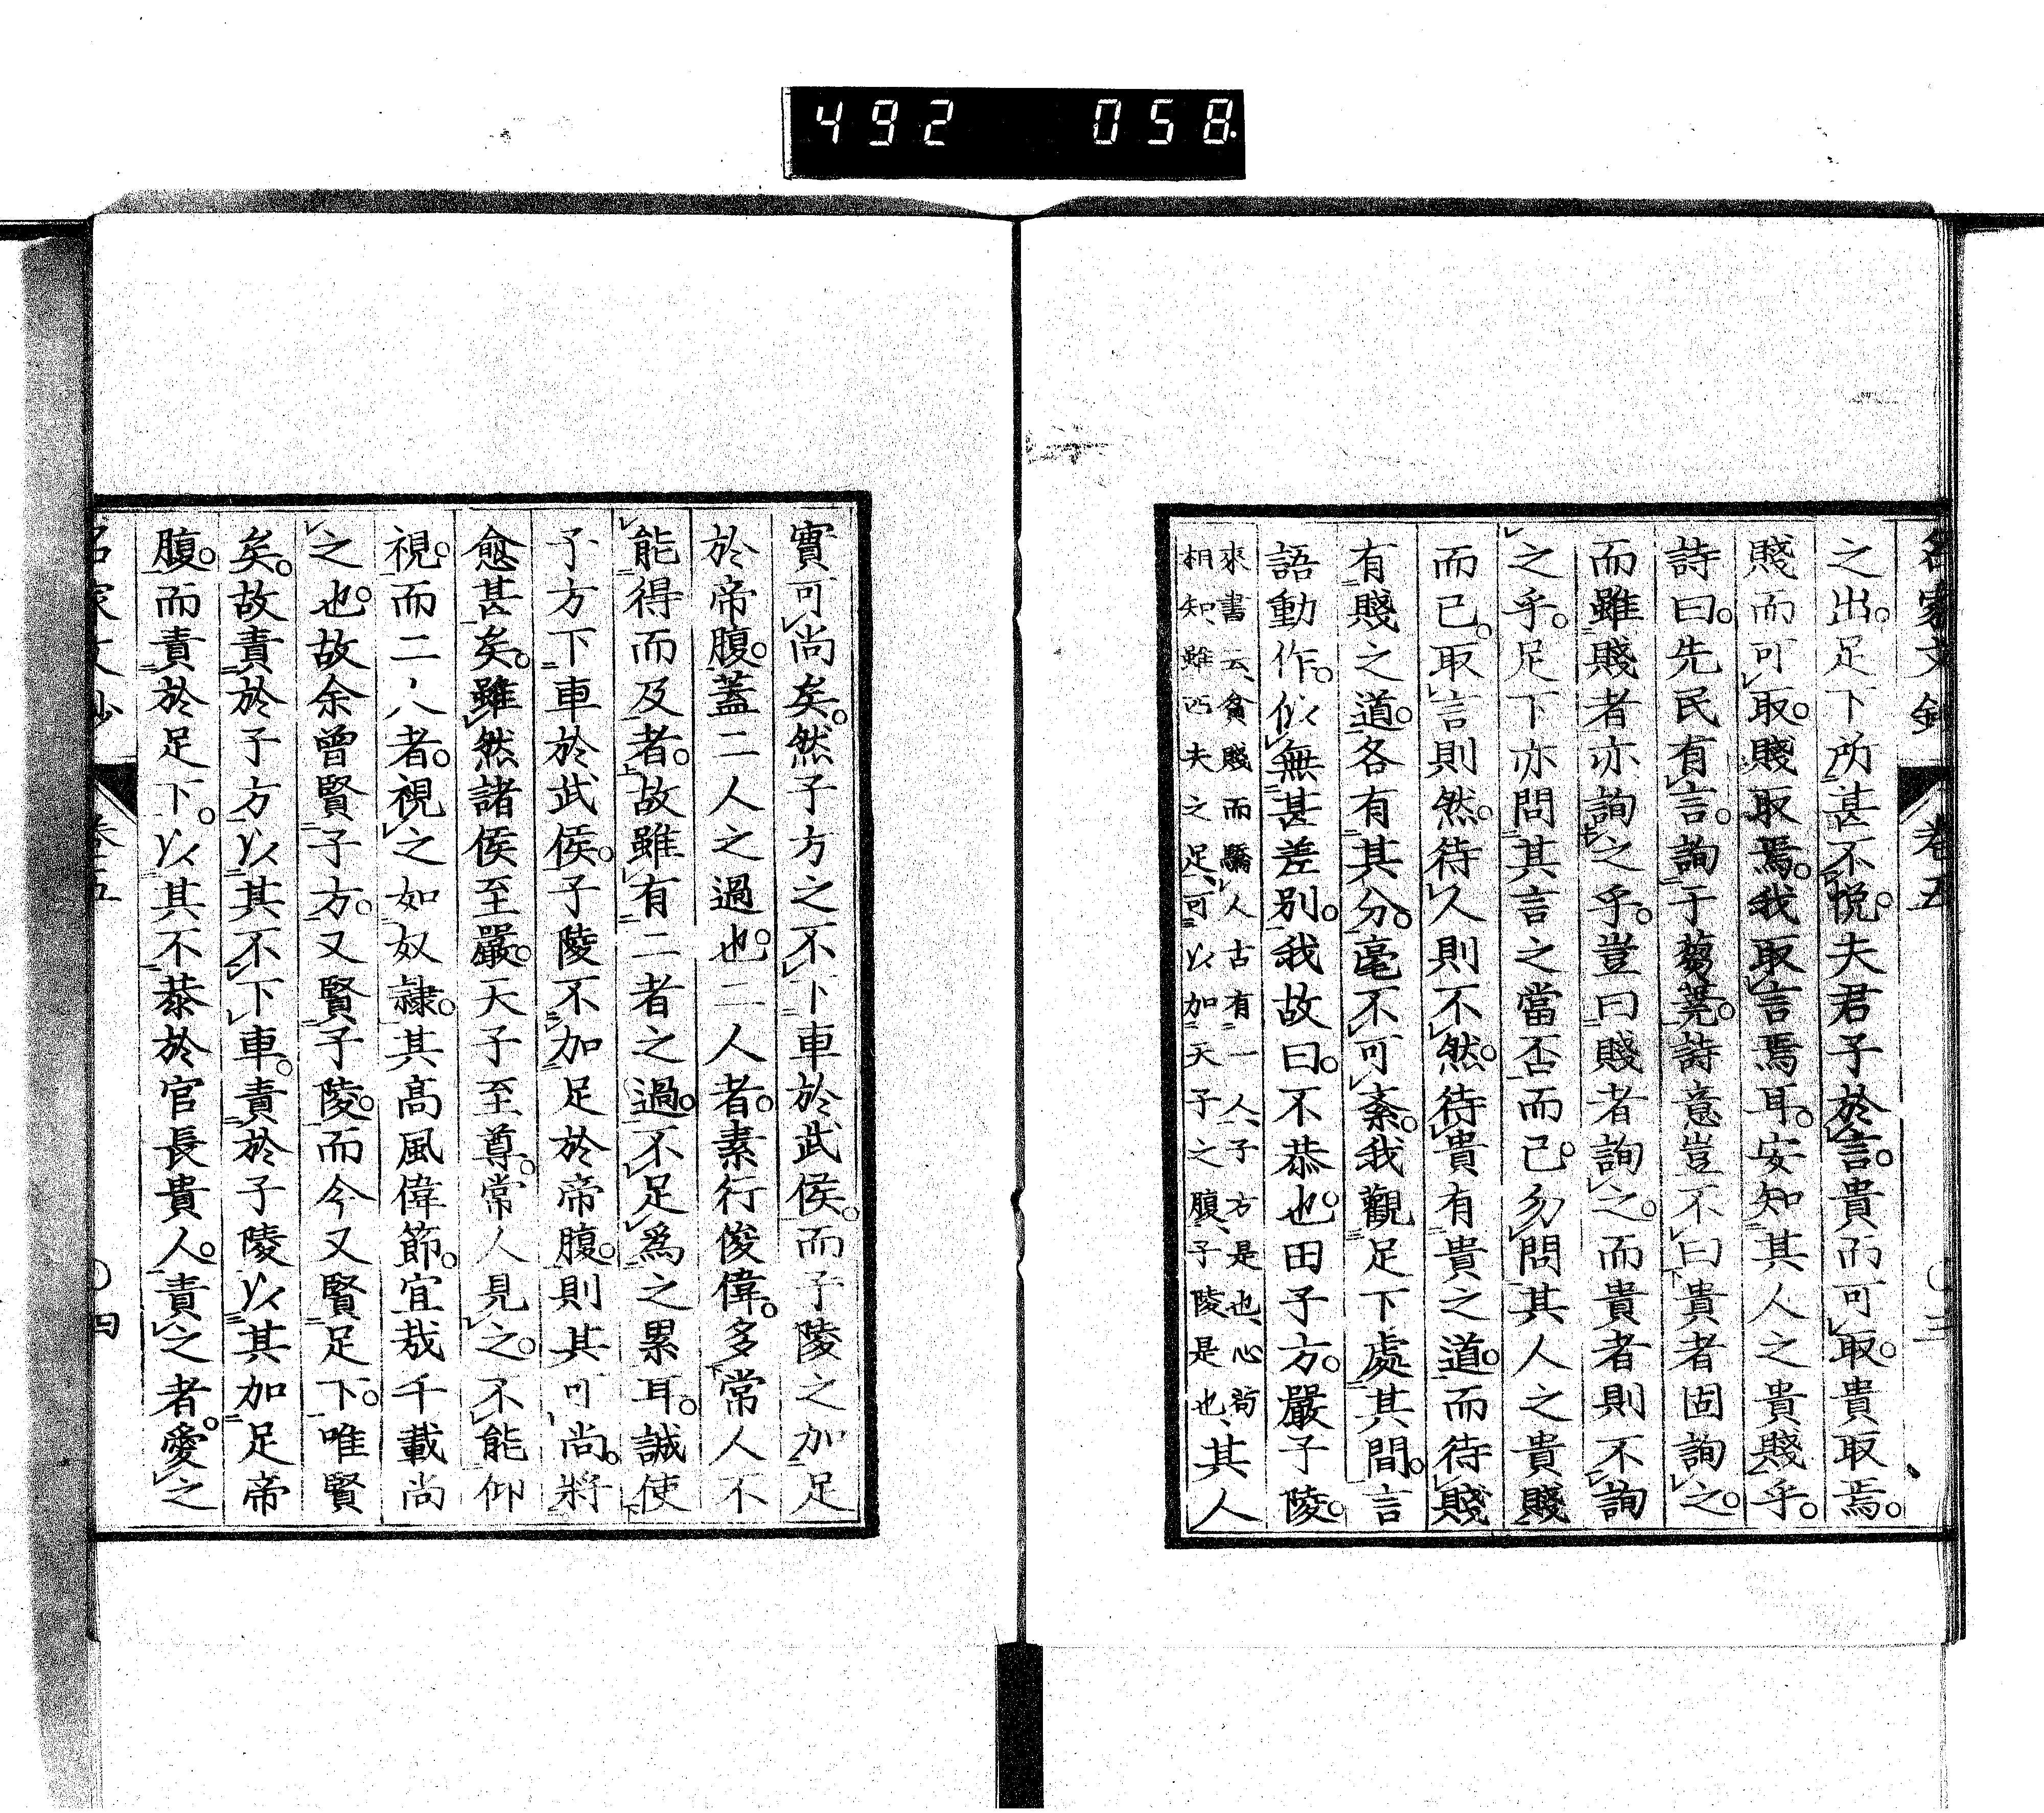 492 058
名家文鈔 卷五 〇三
之出。足下所甚不悅。夫君子於言。貴而可取。貴取焉。
賤而可取。賤取焉。我取言焉耳。安知其人之貴賤乎。
詩曰。先民有言。詢于蒭蕘。詩意豈不曰貴者固詢之。
而雖賤者亦詢之乎。豈曰賤者詢之。而貴者則不詢
之乎。足下亦問其言之當否而已。勿問其人之貴賤
而已。取言則然。待人則不然。待貴有貴之道。而待賤
有賤之道。各有其分。毫不可紊。我觀足下處其間。言
語動作。似無甚差別。我故曰。不恭也。田子方。嚴子陵。
來書云、貧賤而驕人古有一人、子方是也、心苟
相知、雖匹夫之足、可以加天子之腹、子陵是也、其人
實可尚矣。然子方之不下車於武侯。而子陵之加足
於帝腹。蓋二人之過也。二人者。素行俊偉。多常人不
能得而及者。故雖有二者之過。不足爲之累耳。誠使
子方下車於武侯。子陵不加足於帝腹。則其可尚。將
愈甚矣。雖然諸侯至嚴。天子至尊。常人見之。不能仰
視。而二人者。視之如奴隸。其高風偉節。宜哉千載尚
之也。故余曾賢子方。又賢子陵。而今又賢足下。唯賢
矣。故責於子方以其不下車。責於子陵以其加足帝
腹。而責於足下。以其不恭於官長貴人。責之者。愛之
名家文鈔 卷五 〇四